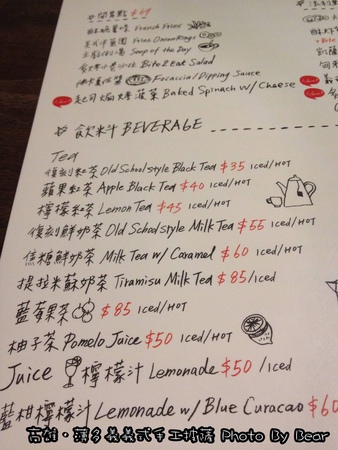 $69
French Fries
Fried Onion Rings
Soup of the Day
Bite 2 Eat Salad
Focaccia/Dipping Sauce
起司焗烤菠菜 Baked Spinach w/ Cheese
飲料 BEVERAGE
Tea
復刻紅茶 Old School style Black Tea $35 ICED/HOT
蘋果紅茶 Apple Black Tea $40 ICED/HOT
檸檬紅茶 Lemon Tea $45 ICED/HOT
復刻鮮奶茶 Old School style Milk Tea $55 ICED/HOT
焦糖鮮奶茶 Milk Tea w/ Caramel $60 ICED/HOT
提拉米蘇奶茶 Tiramisu Milk Tea $85/ICED
藍莓果茶 $85 ICED/HOT
柚子茶 Pomelo Juice $50 ICED/HOT
Juice 檸檬汁 Lemonade $50 /ICED
藍柑檸檬汁 Lemonade w/ Blue Curacao $60
高雄・薄多義義式手工披薩 Photo By Bear